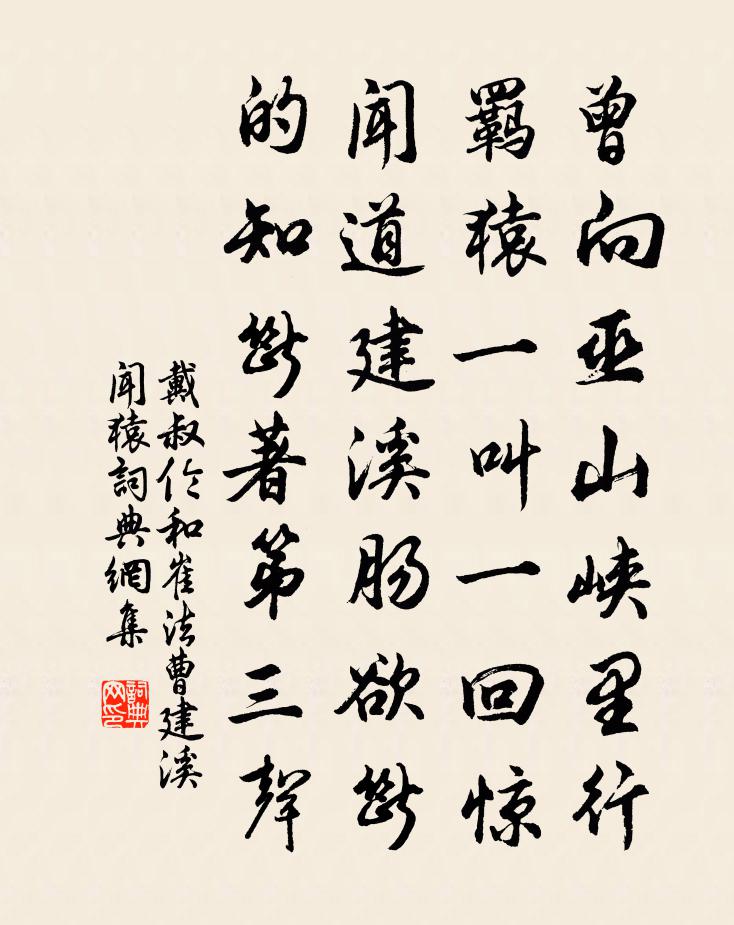 曾向巫山峡里行
羁猿一叫一回惊
闻道建溪肠欲断
的知断著第三聲
戴叔伦和崔法曹建溪
闻猿詞典網集
詞典
网印